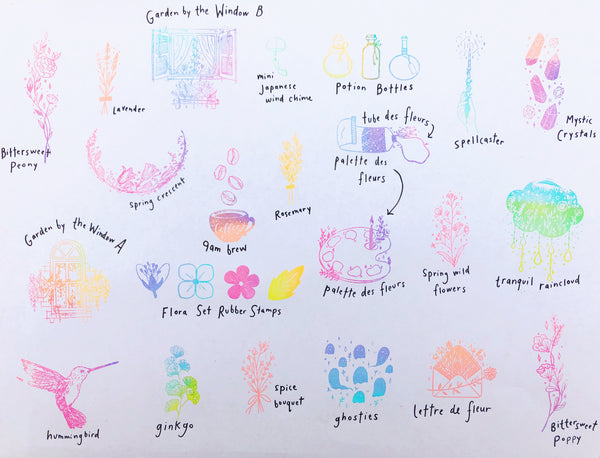 Garden by the Window B
Bittersweet
Peony
Lavender
mini
Japanese
wind chime
Potion Bottles
spellcaster
Mystic
Crystals
spring crescent
9am brew
Rosemary
tube des fleurs
palette des
fleurs
Garden by the Window A
Flora Set Rubber Stamps
palette des fleurs
Spring wild
flowers
tranquil raincloud
hummingbird
ginkgo
spice
bouquet
ghosties
lettre de fleur
Bittersweet
Poppy